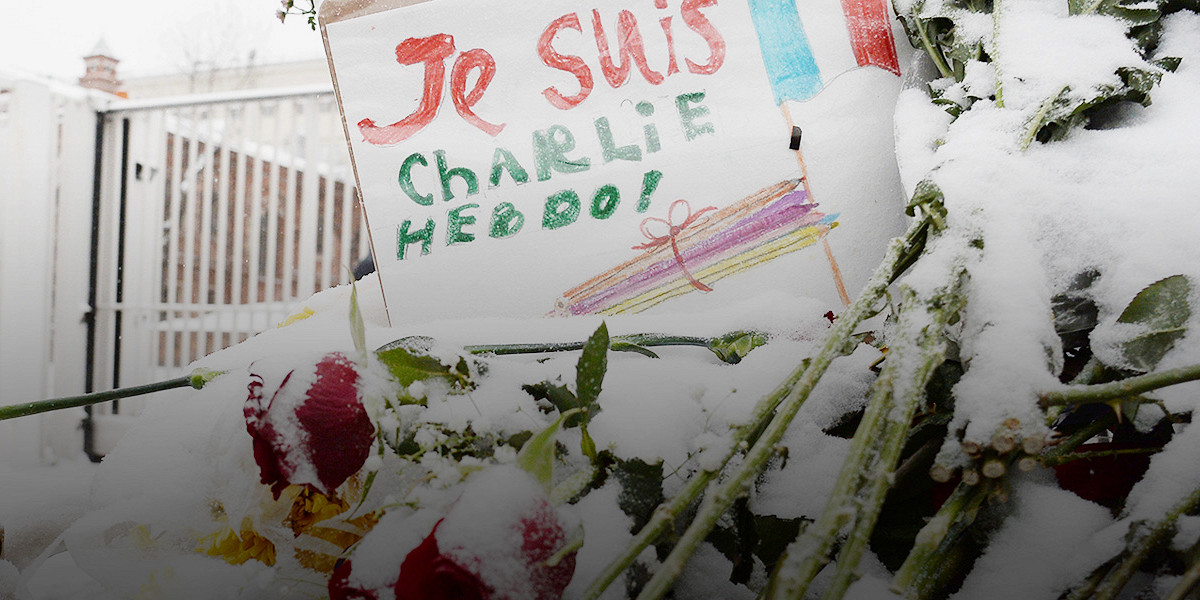 Je suis
ChARLiE
HEBDO!